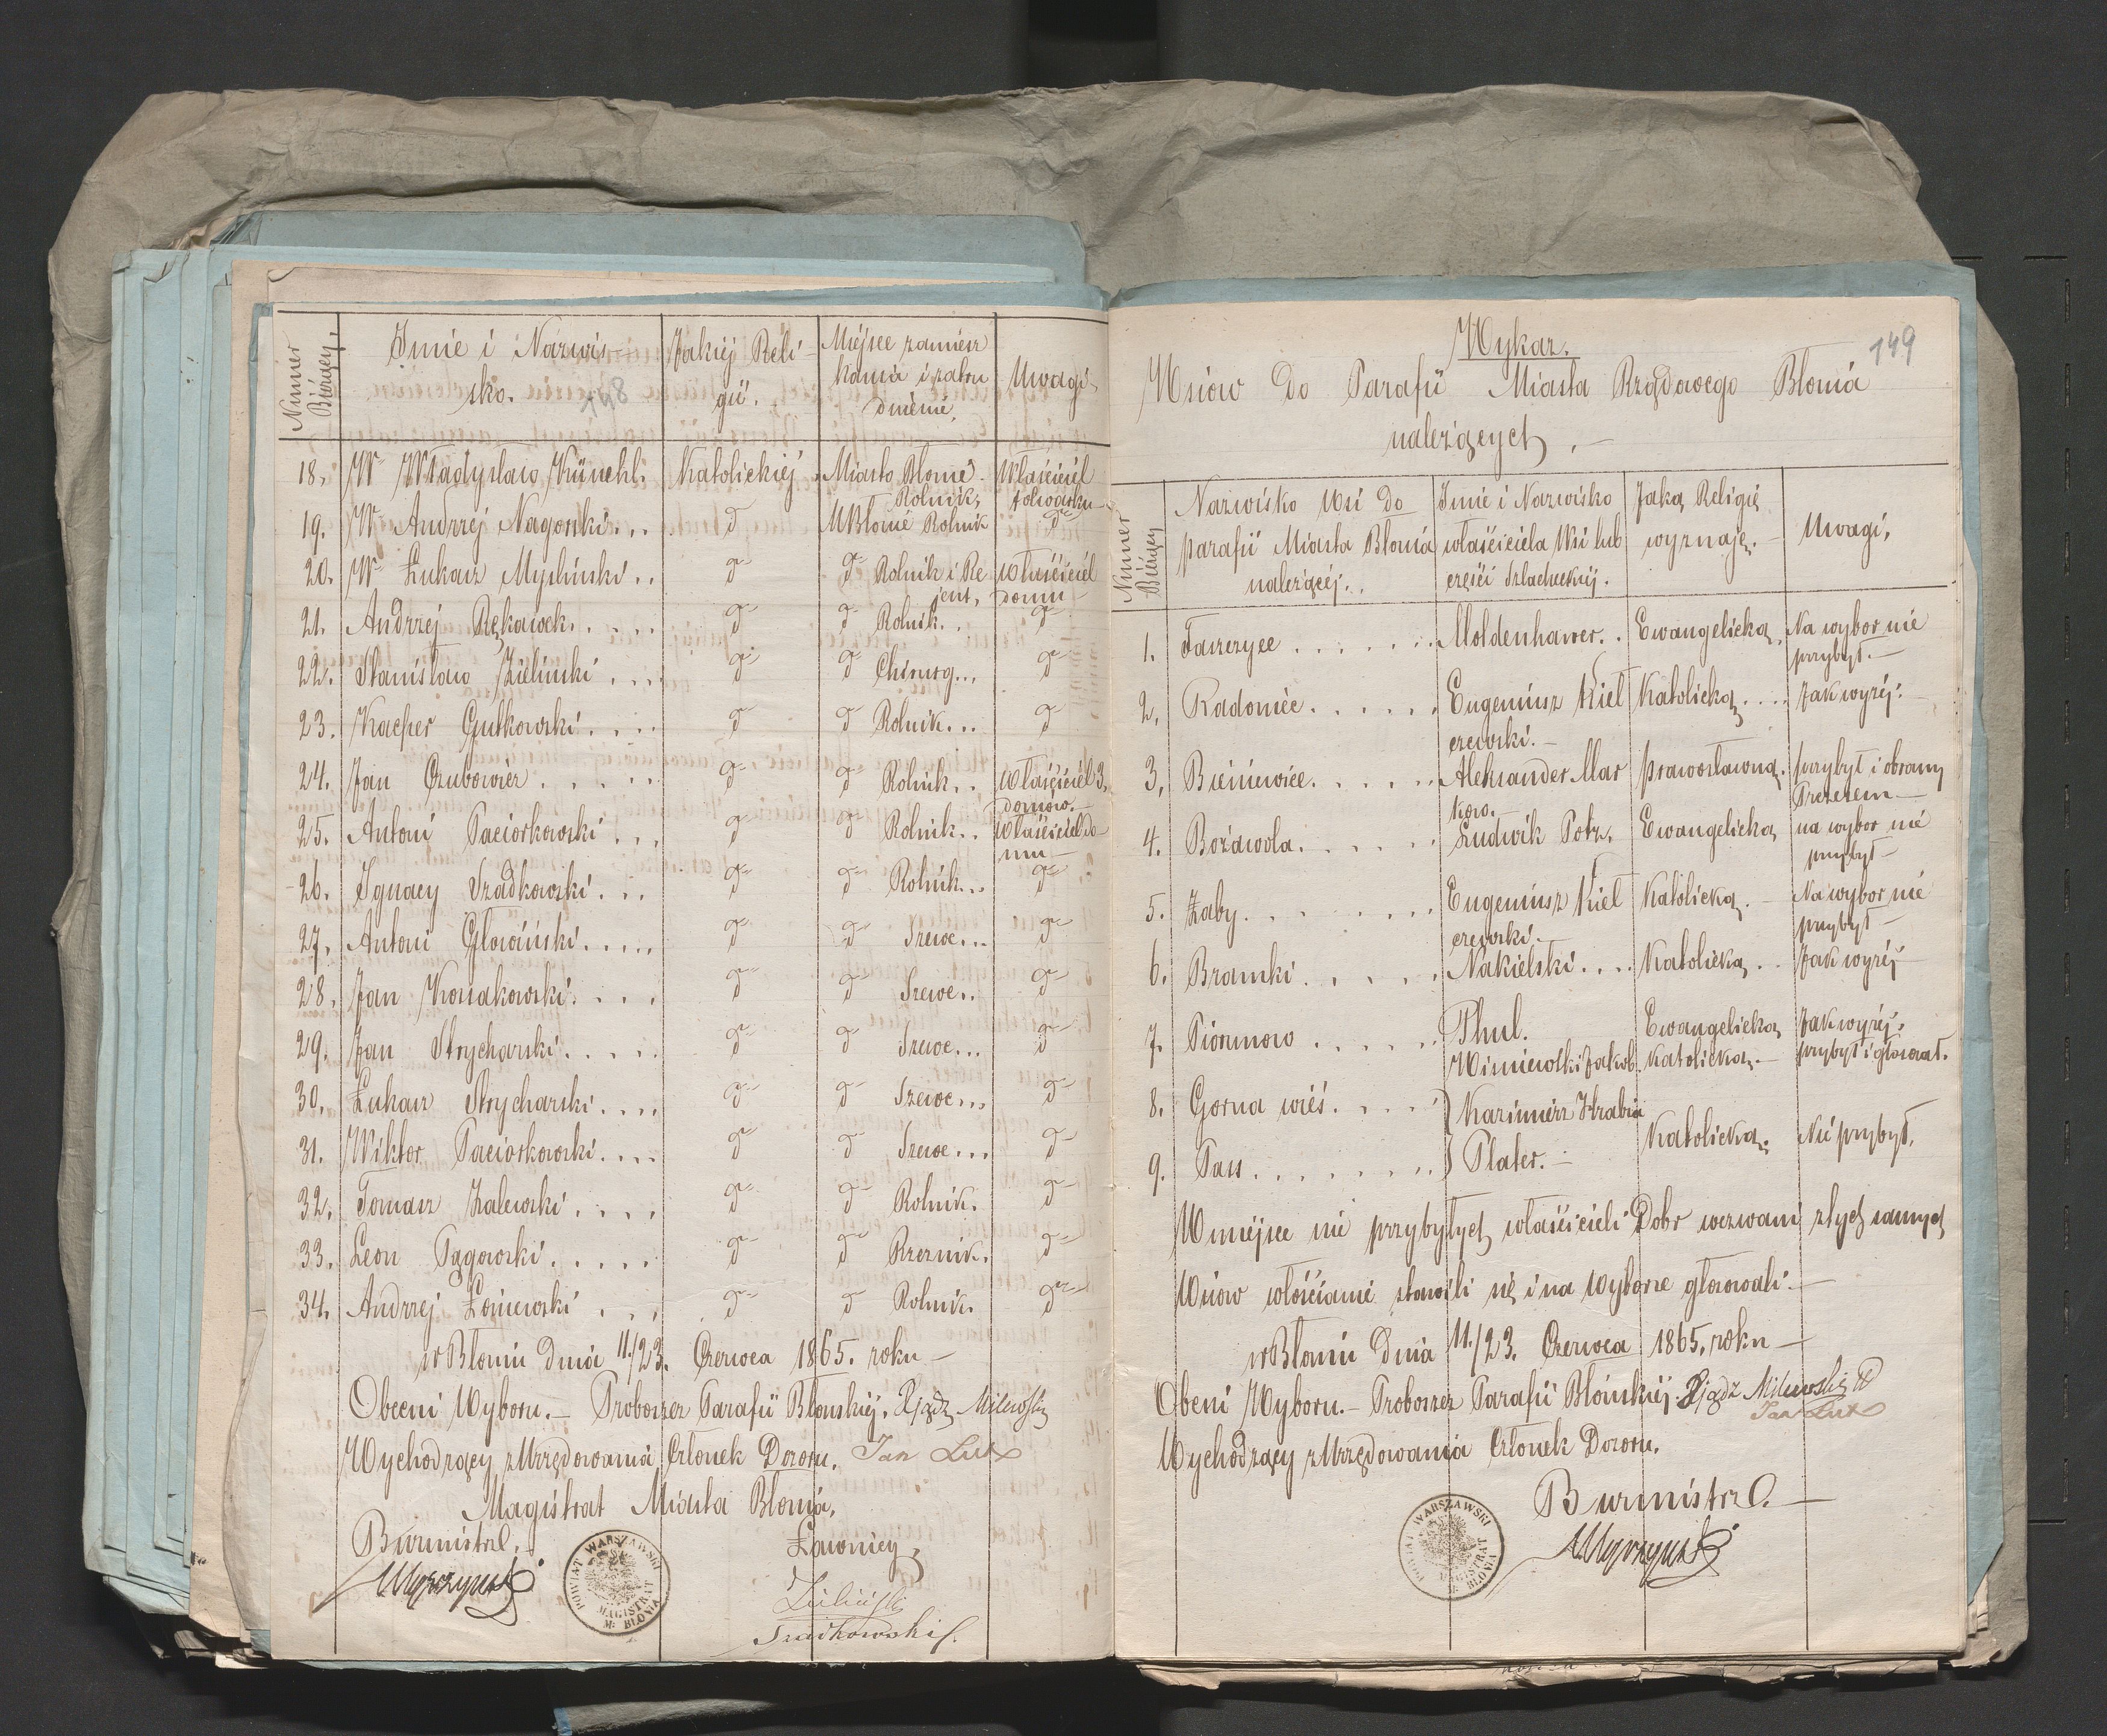 Numer Bieżący,
Imie i Nazwisko.
Jakiej Religii.
Miejsce zamieszkania i zatrudnienie,
Uwagi
148
18. W Władysław Künehl. Katolickiéj Miasto Błonie Rolnik, Właściciel folwarku
19. W Andrzej Nagorski... d M Błonie Rolnik d
20. W Łukasz Myśliński.. d d Rolnik i Rejent, właściciel domu
21. Andrzej Rękawek..... d d Rolnik.. d
22. Stanisław Zieliński.... d d Chirurg... d
23. Kacper Gutkowski..... d d Rolnik... d
24. Jan Czubowicz..... d d Rolnik.. właściciel 3. domów.
25. Antoni Paciorkowski... d d Rolnik.. właściciel domu
26. Ignacy Szadkowski... d d Rolnik... d
27. Antoni Głowiński..... d d Szewc... d
28. Jan Kossakowski.... d d Szewc.. d
29. Jan Strycharski..... d d Szewc... d
30. Łukasz Strycharski.... d d Szewc... d
31. Wiktor Paciorkowski.... d d Szewc... d
32. Tomasz Zalewski.... d d Rolnik. d
33. Leon Pągowski..... d d Rzeznik. d
34. Andrzej Łoniewski.... d d Rolnik. d
w Błoniu dnia 11./23. Czerwca 1865. roku
Obecni Wyboru.- Proboszcz Parafii Błonskiej. Xjądz Milewski
Wychodzący z Urzędowania Członek Dozoru. Jan Lux
Magistrat Miasta Błonia,
Burmistrz.
Ławnicy,
POWIAT WARSZAWSKI MAGISTRAT M: BŁONIA
Zieliński
Szadkowski
149
Wykaz.
Wsiow do Parafii Miasta Rządowego Błonia
należących.
Numer Bieżący
Nazwisko Wsi do parafii Miasta Błonia należącéj..
Imie i Nazwisko właściciela Wsi lub części szlacheckiej.
Jaką Religię wyznaje.
Uwagi,
1. Faszczyce...... Moldenhawer.. Ewangelicką Na wybor nie przybył.
2. Radonice...... Eugeniusz Kiełczewski. Katolicką.... Jak wyżéj.
3. Bieniewice...... Aleksander Markow. prawosławną. przybył i obrany Prezesem
4. Bożawola...... Ludwik Potz. Ewangelicką na wybor nie przybył
5. Żaby........ Eugeniusz Kiełczewski. Katolicką. Na wybor nie przybył
6. Bramki...... Nakielski.... Katolicką.. Jak wyżéj
7. Piorunow...... Phul. Ewangelicką Jak wyżéj.
Wiśniewski Jakob. Katolicką. przybył i głosował.
8. Gorna wieś..... Kazimierz Hrabia
9. Pass........ Plater. Katolicką. Nie przybył.
W miejsce nie przybyłych właścicieli Dobr wezwani z tych samych
Wsiow włościanie stawili się i na Wyborze głosowali.
w Błoniu dnia 11./23. Czerwca 1865. roku
Obecni Wyboru.- Proboszcz Parafii Błońskiej. Xjądz Milewski
Jan Lux
Wychodzący z Urzędowania Członek Dozoru.
Burmistrz.
POWIAT WARSZAWSKI MAGISTRAT M: BŁONIA